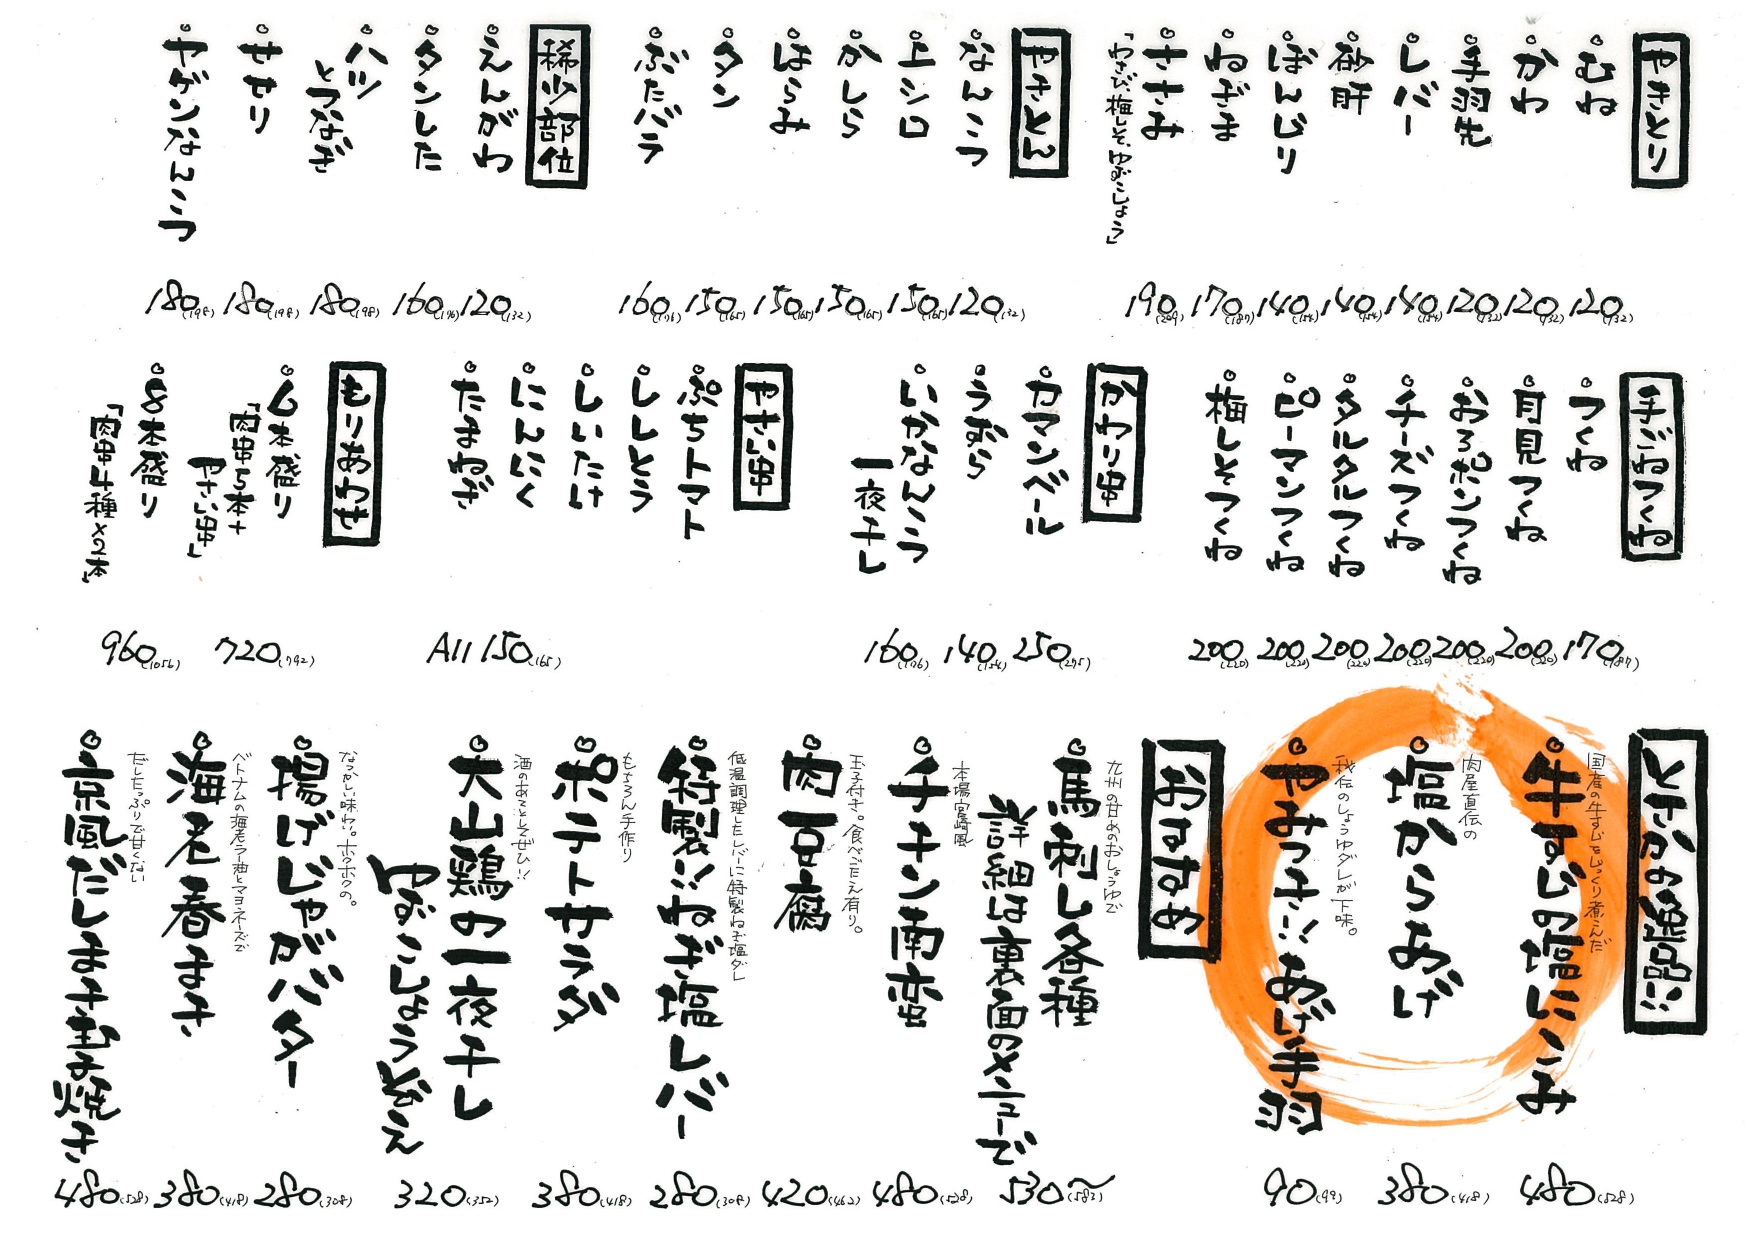 やきとり
むね
かわ
手羽先
レバー
砂肝
ぼんじり
ねぎま
ささみ
「わさび、梅しそ、ゆずこしょう」
120(132)
120(132)
120(132)
140(154)
140(154)
140(154)
170(187)
190(209)
やきとん
なんこつ
上シロ
かしら
はらみ
タン
ぶたバラ
120(132)
150(165)
150(165)
150(165)
150(165)
160(176)
稀少部位
えんがわ
タンした
ハツ
とつなぎ
せせり
ヤゲンなんこつ
120(132)
160(176)
180(198)
180(198)
180(198)
手ごねつくね
つくね
月見つくね
おろポンつくね
チーズつくね
タルタルつくね
ピーマンつくね
梅しそつくね
170(187)
200(220)
200(220)
200(220)
200(220)
200(220)
200(220)
かわり串
カマンベール
うずら
いかなんこつ
一夜干し
250(275)
140(154)
160(176)
やさい串
ぷちトマト
ししとう
しいたけ
にんにく
たまねぎ
All 150(165)
もりあわせ
6本盛り
「肉串5本+
やさい串」
8本盛り
「肉串4種×2本」
720(792)
960(1056)
とさかの逸品!!
国産の牛すじをじっくり煮こんだ
牛すじの塩にこみ
肉屋直伝の
塩からあげ
秘伝のしょうゆダレが下味。
やみつき!!あげ手羽
480(528)
380(418)
90(99)
おすすめ
九州の甘めのおしょうゆで
馬刺し各種
詳細は裏面のメニューで
本場宮崎風
チキン南蛮
玉子付き。食べごたえ有り。
肉豆腐
低温調理したレバーに特製ねぎ塩ダレ
特製!!ねぎ塩レバー
もちろん手作り
ポテトサラダ
酒のあてとしてぜひ!!
大山鶏の一夜干し
ゆずこしょうぞえ
なつかしい味わい。ホクホクの。
揚げじゃがバター
ベトナムの海老ラー油とマヨネーズで
海老春まき
だしたっぷりで甘くない
京風だしまき玉子焼き
530〜(583)
480(528)
420(462)
280(308)
380(418)
320(352)
280(308)
380(418)
480(528)